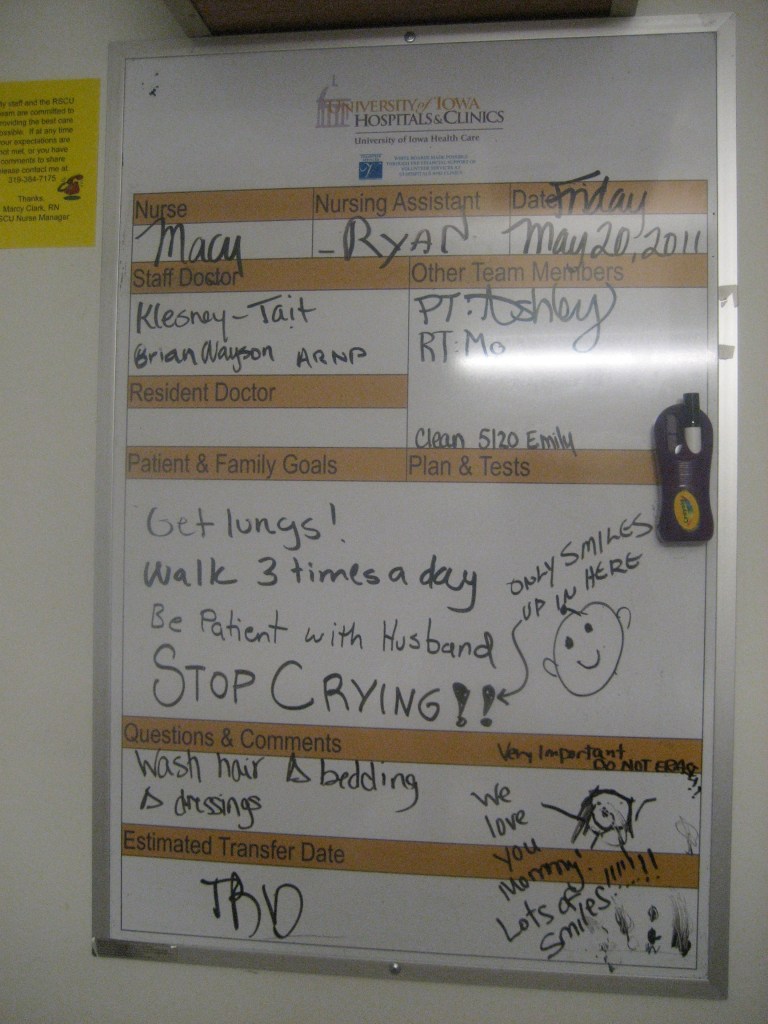 UNIVERSITY of IOWA
HOSPITALS & CLINICS
University of Iowa Health Care
y staff and the RSCU
eam are committed to
roviding the best care
ossible. If at any time
our expectations are
not met, or you have
omments to share
lease contact me at
319-384-7175
Thanks,
Marcy Clark, RN
SCU Nurse Manager
Nurse
Macy
Nursing Assistant
-RYAN
Date Friday
May 20, 2011
Staff Doctor
Klesney-Tait
Brian Wayson ARNP
Other Team Members
PT: Ashley
RT: Mo
Clean 5/20 Emily
Resident Doctor
Patient & Family Goals
Plan & Tests
Get lungs!
Walk 3 times a day
Be Patient with Husband
STOP CRYING!!
ONLY SMILES
UP IN HERE
Questions & Comments
Wash hair Δ bedding
Δ dressings
Very Important
DO NOT ERASE
!!
We
love
you
Mommy!
Lots of
smiles......!!!!!!
Estimated Transfer Date
TBD